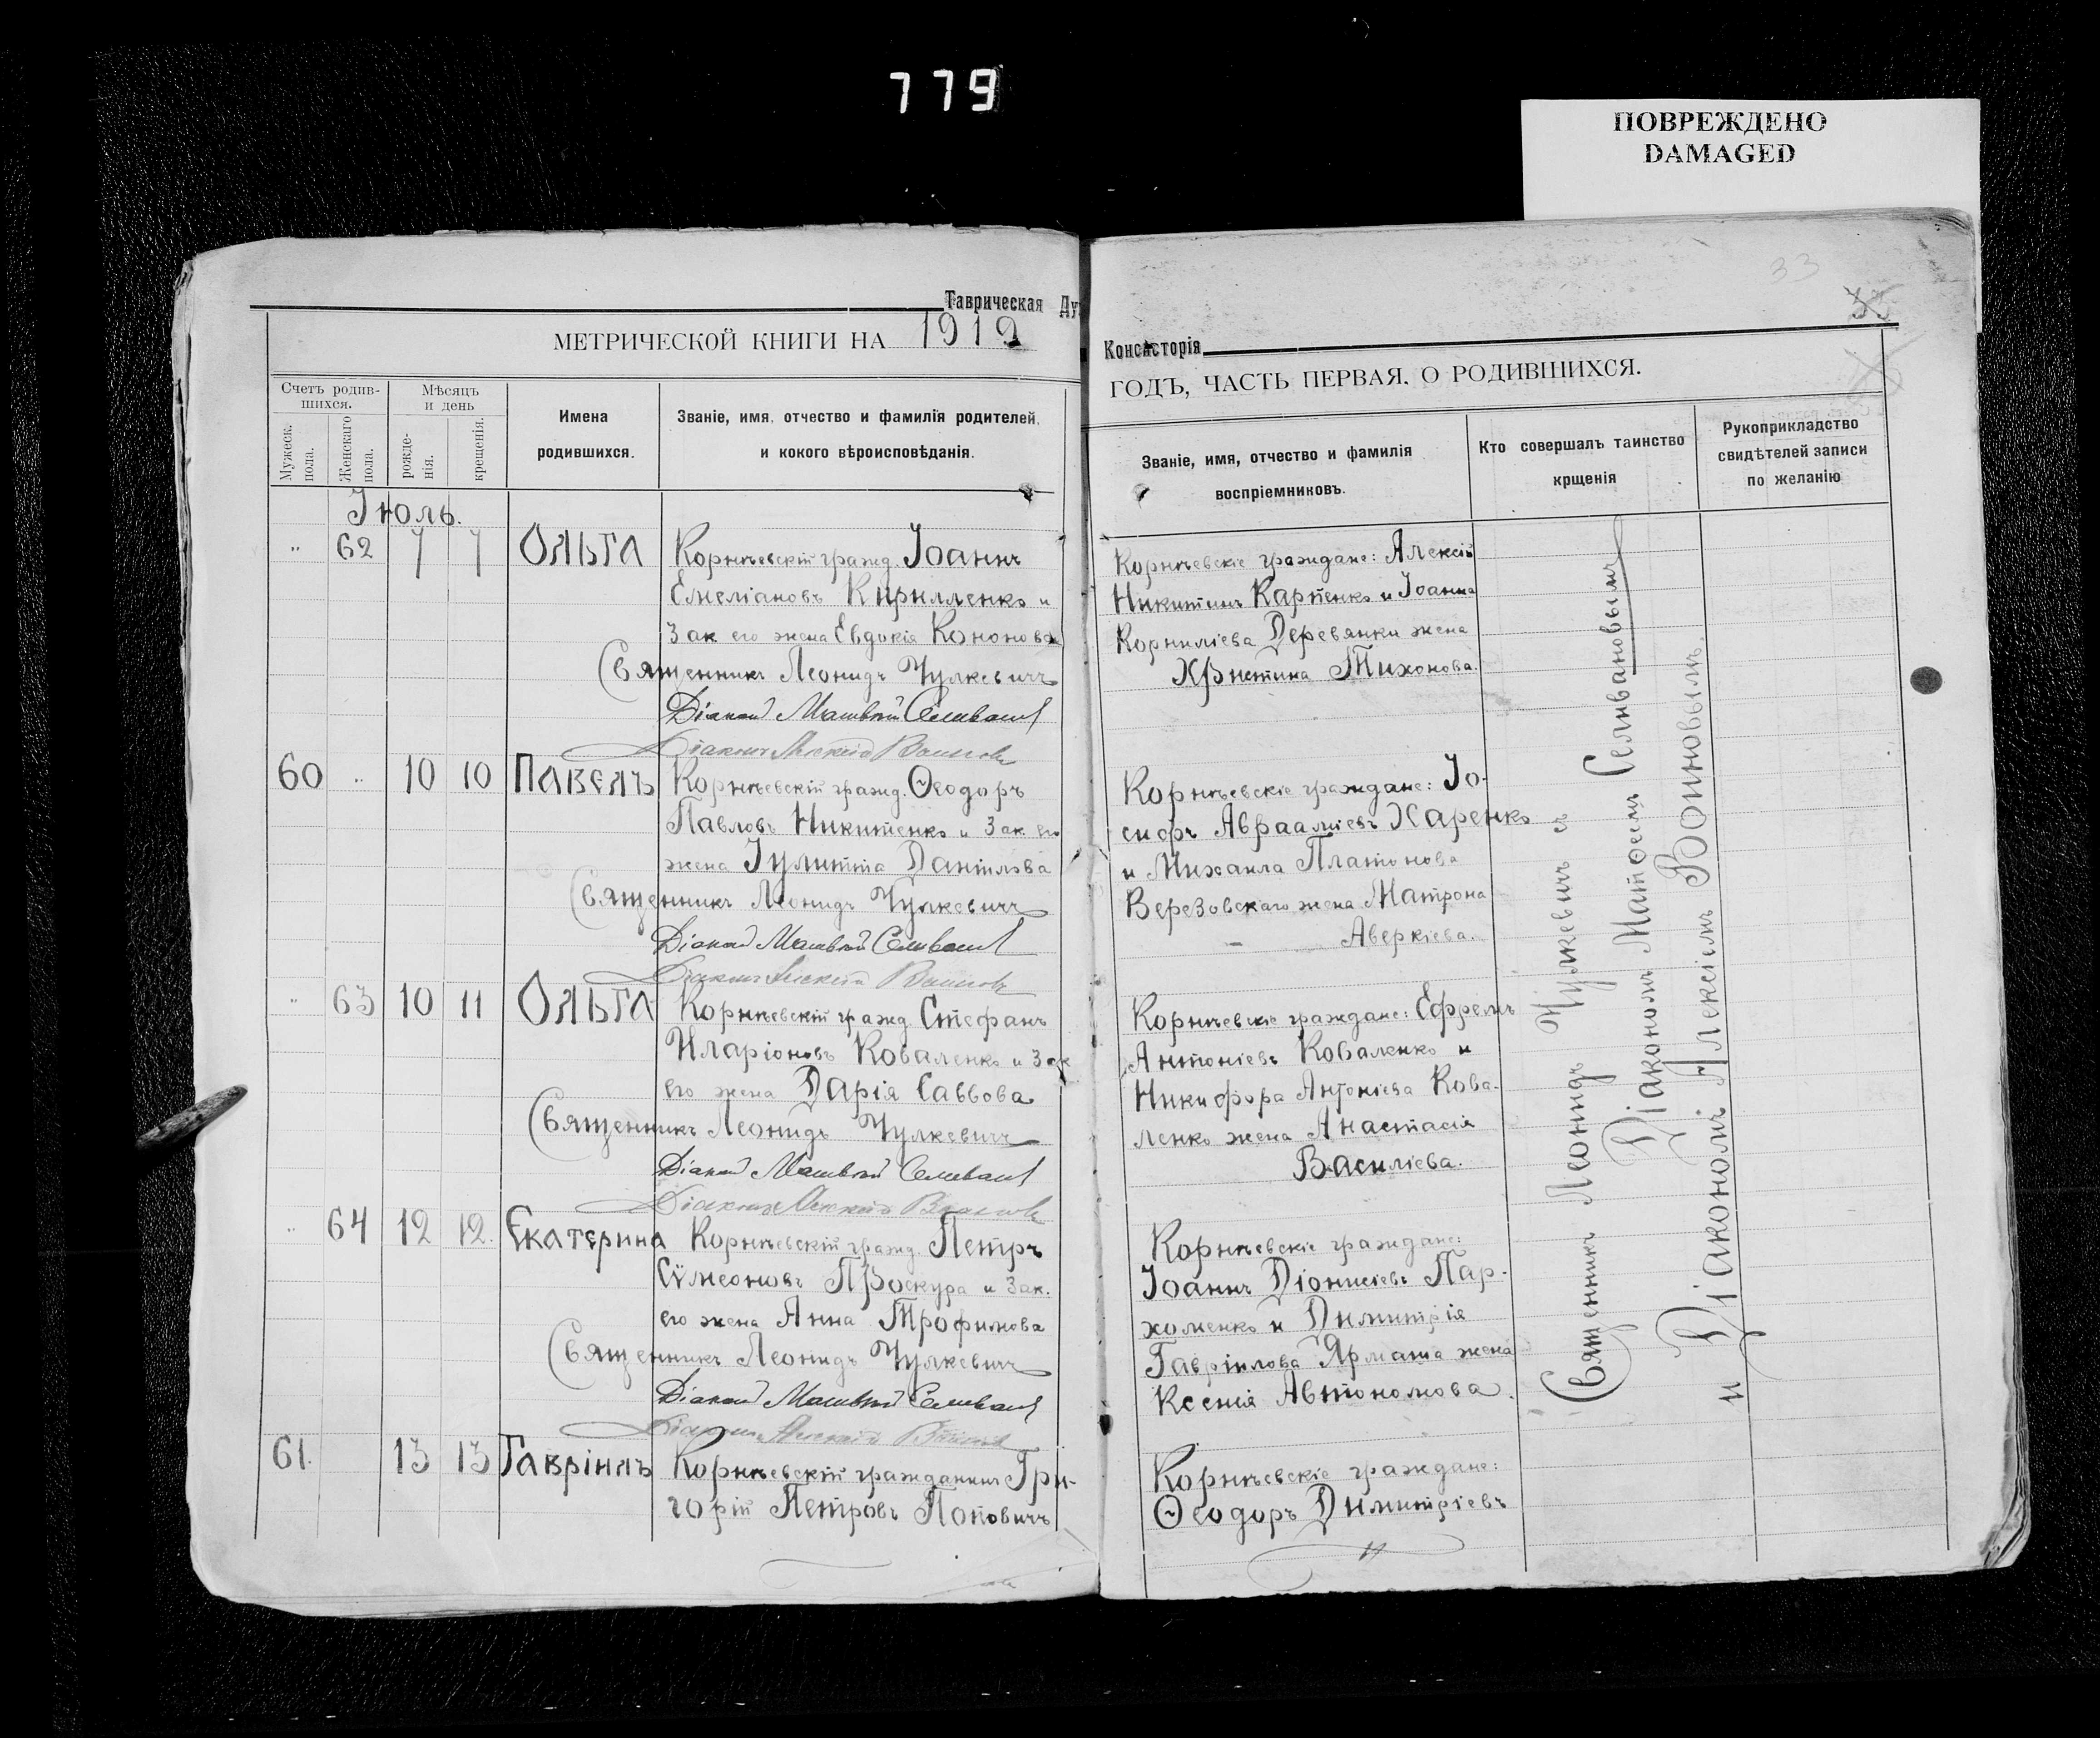 779
ПОВРЕЖДЕНО
DAMAGED
33
Таврическая Ду
МЕТРИЧЕСКОЙ КНИГИ НА 1919
Счетъ родив-
шихся.
Мужеск. пола.
Женскаго пола.
Мѣсяцъ
и день
рожде-
нія.
крещенія.
Имена
родившихся.
Званіе, имя, отчество и фамилія родителей,
и кокого вѣроисповѣданія.
Іюль.
" 62 7 7 Ольга Корнѣевскій гражд. Іоаннъ
Емеліановъ Кирилленко и
Зак его жена Евдокія Кононова
Священникъ Леонидъ Чулкевичъ
Діаконъ Матвѣй Селиванов
Діаконъ Алексій Воиновъ
60 " 10 10 Павелъ Корнѣевскій гражд. Ѳеодоръ
Павловъ Никитенко и Зак его
жена Іулитта Даніилова
Священникъ Леонидъ Чулкевичъ
Діаконъ Матвѣй Селиванов
Діаконъ Алексій Воиновъ
" 63 10 11 Ольга Корнѣевскій гражд. Стефанъ
Иларіоновъ Коваленко и Зак
его жена Дарія Саввова
Священникъ Леонидъ Чулкевичъ
Діаконъ Матвѣй Селиванов
Діаконъ Алексій Воиновъ
" 64 12 12. Екатерина Корнѣевскій гражд. Петръ
Сѵмеоновъ Проскура и Зак.
его жена Анна Трофимова
Священникъ Леонидъ Чулкевичъ
Діаконъ Матвѣй Селиванов
Діаконъ Алексій Воиновъ
61. 13 13 Гавріилъ Корнѣевскій гражданинъ Гри-
горій Петровъ Поповичъ
Консисторія
ГОДЪ, ЧАСТЬ ПЕРВАЯ. О РОДИВШИХСЯ.
Званіе, имя, отчество и фамилія
воспріемниковъ.
Кто совершалъ таинство
крщенія
Рукоприкладство
свидѣтелей записи
по желанію
Корнѣевскіе граждане: Алексій
Никитинъ Карпенко и Іоанна
Корниліева Деревянки жена
Христина Тихонова.
Корнѣевскіе граждане: Іо-
сифъ Авраамiевъ Харенко
и Михаила Платонова
Березовскаго жена Матрона
Аверкіева.
Корнѣевскіе граждане: Ефремъ
Антоніевъ Коваленко и
Никифора Антоніева Кова-
ленко жена Анастасія
Василіева.
Корнѣевскіе граждане:
Іоаннъ Діонисіевъ Пар-
хоменко и Димитрія
Гавріилова Ярмаша жена
Ксенія Автономова.
Корнѣевскіе граждане:
Ѳеодоръ Димитріевъ
Священникъ Леонидъ Чулкевичъ съ
Діакономъ Матѳеемъ Селивановымъ
и Діакономъ Алексіемъ Воиновымъ.